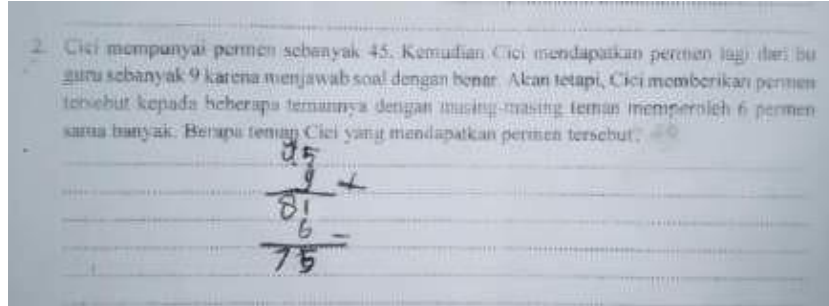 2. Cici mempunyai permen sebanyak 45. Kemudian Cici mendapatkan permen lagi dari bu
guru sebanyak 9 karena menjawab soal dengan benar. Akan tetapi, Cici memberikan permen
tersebut kepada beberapa temannya dengan masing-masing teman memperoleh 6 permen
sama banyak. Berapa teman Cici yang mendapatkan permen tersebut?
95
9 +
81
6 -
75